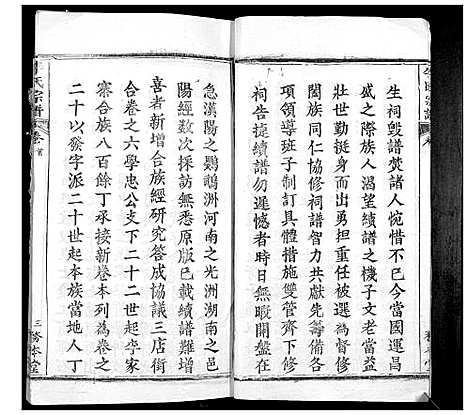 生祠毁譜焚諸人惋惜不已今當國運昌
盛之際族人渴望續譜之機子文老當益
壯世勤挺身而出勇担重任默為督修
闔族同仁協修祠譜智力共獻先籌備各
項領導班子制訂具體措施雙管齊下修
祠告捷續譜勿遲憾者日時無暇開盤在
急漢陽之鸚鵡洲河南之光洲湖南之邑
陽經數次採訪無悉原版已載續譜難增
喜者新增合族經研究答成協議三店街
合卷之六學忠公支下二十二世起李家
寨合族八百餘丁承接新卷本列為卷之
二十以發字派二十世起本族當地人丁
氏宗譜
卷首
三
務本堂